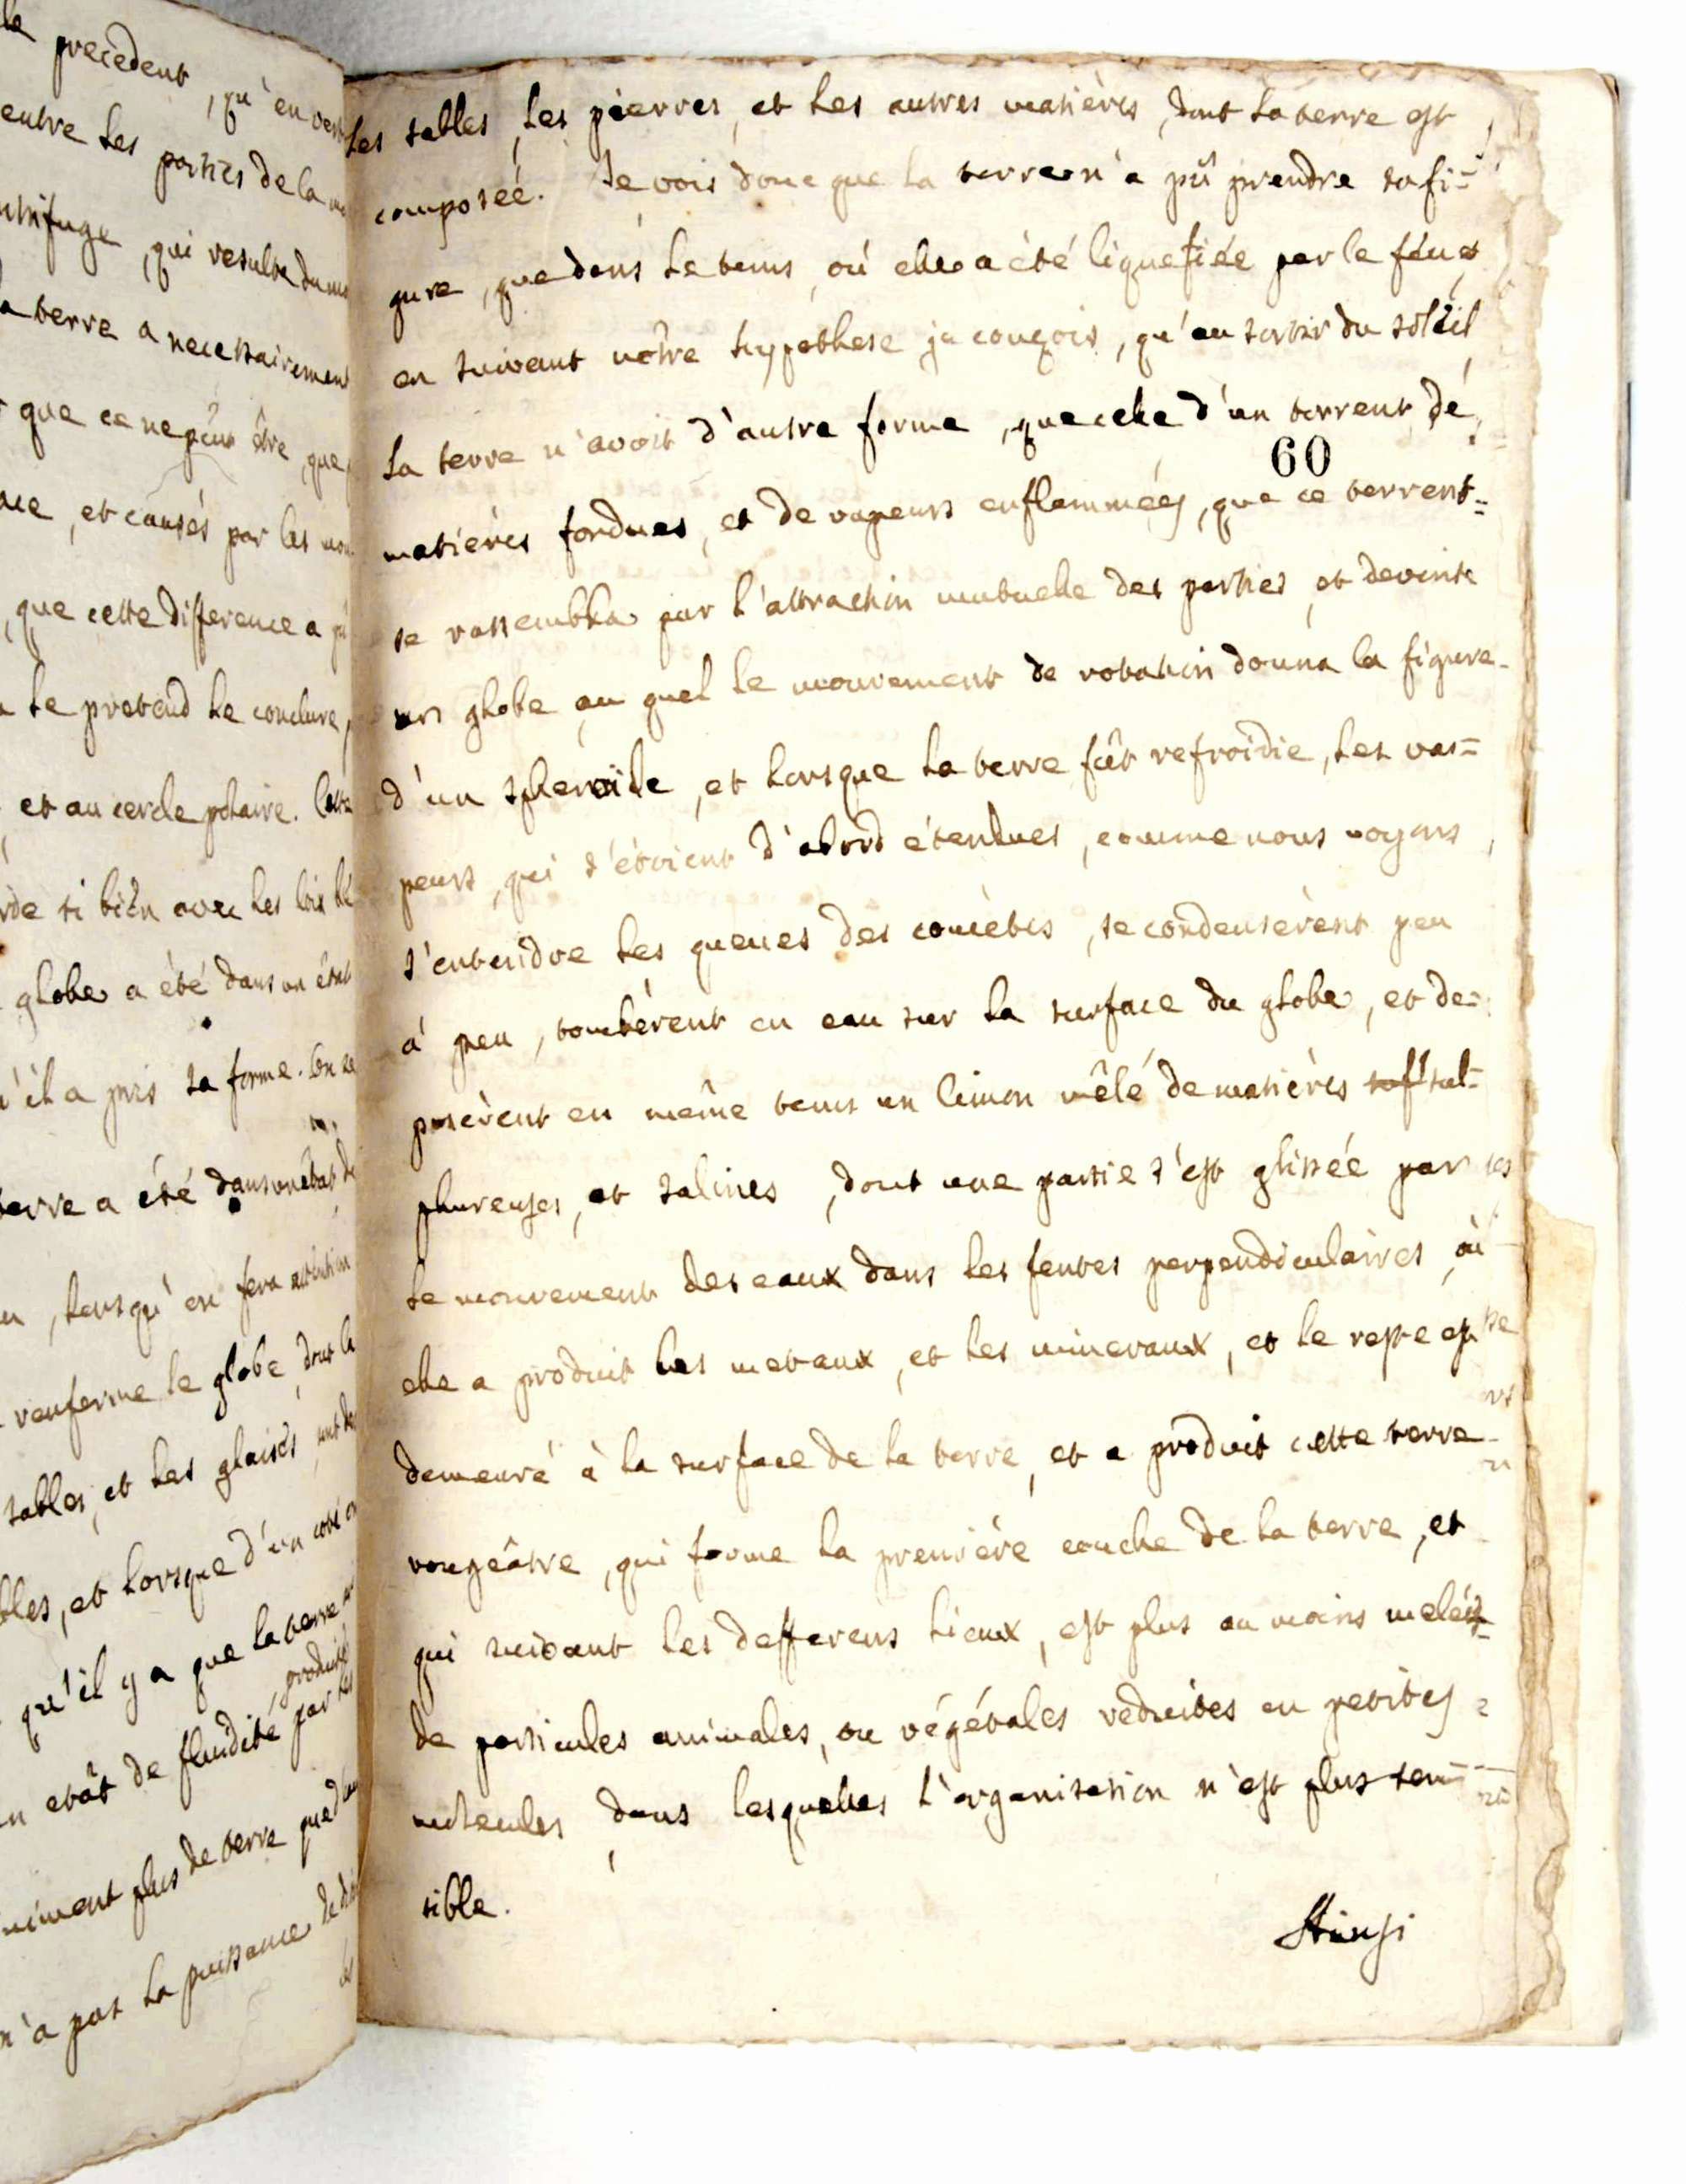 le precedent, qu'en ver
entre les parties de la
ntrifuge, qui resulte du m
a terre a necessairement
que ce ne peut être, que
ace, et causés par les mou
, que cette difference a pû
le pretend le conclure,
et au cercle polaire. Cette
rde si bien avec les lois de
globe a été dans un état
u'il a pris sa forme. On ne
terre a été dans un état de
, lorsqu'on fera attention
renferme le globe, dont le
sables, et les glaises sont de
bles, et lorsque d'un coté on
qu'il y a que la terre
, produite
n etât de fluidité par les
niment plus de terre que d
n'a pas la puissance de di
les
les sables, les pierres, et les autres matières, dont la terre est
composeé. Je vois donc que la terre n'a pû prendre sa fi=
gure, que dans le tems, où elle a été liquefiée par le feu, et
en suivant nôtre hypothese je conçois, qu'au sortir du soleil
la terre n'avoit d'autre forme, que celle d'un torrent de
60
matières fondues, et de vapeurs enflammées, que ce torrent=
se rassembla par l'attraction mutuelle des parties, et devint
un globe, au quel le mouvement de rotation donna la figure
d'un spheroïde, et lorsque la terre fût refroidie, les va=
peurs, qui s'étoient d'abord étendues, comme nous voyons,
s'entendre les queues des comètes, se condensèrent peu
à peu, tombèrent en eau sur la surface du globe, et de=
posèrent en même tems un limon mêlé de matières sulf sul=
phureuses, et salines, dont une partie s'est glissée par
le mouvement des eaux dans les fentes perpendiculaires, où
elle a produit les metaux, et les mineraux, et le reste est
demeuré à la surface de la terre, et a produit cette terre
rougeâtre, qui forme la première couche de la terre, et
qui suivant les differens lieux, est plus ou moins meleé
de particules animales, ou végétales reduites en petites
molecules, dans lesquelles l'organisation n'est plus sen=
sible.